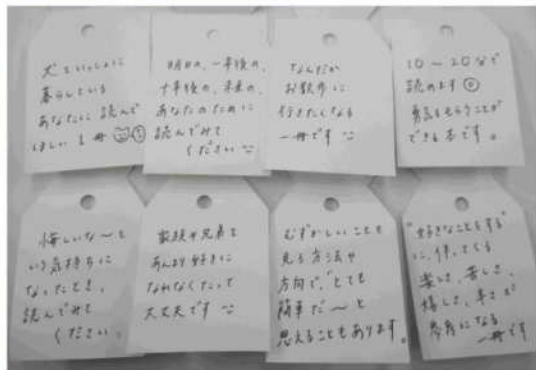 犬といっしょに
暮らしている
あなたに読んで
ほしい1冊
明日の、一年後の、
十年後の、未来の、
あなたのために
読んでみて
ください
なんだか
お散歩に
行きたくなる
一冊です
10～20分で
読めます
勇気をもらうことが
できる本です。
悔しいな～と
いう気持ちに
なったとき、
読んでみて
ください。
家族や兄弟を
あんまり好きに
なれなくたって
大丈夫です
むずかしいことも
見る方法や
方向で、"とても
簡単だ～と
思えることもあります。
"好きなことをする"
に、伴ってくる
楽しさ、苦しさ、
嬉しさ、辛さが
参考になる
一冊です